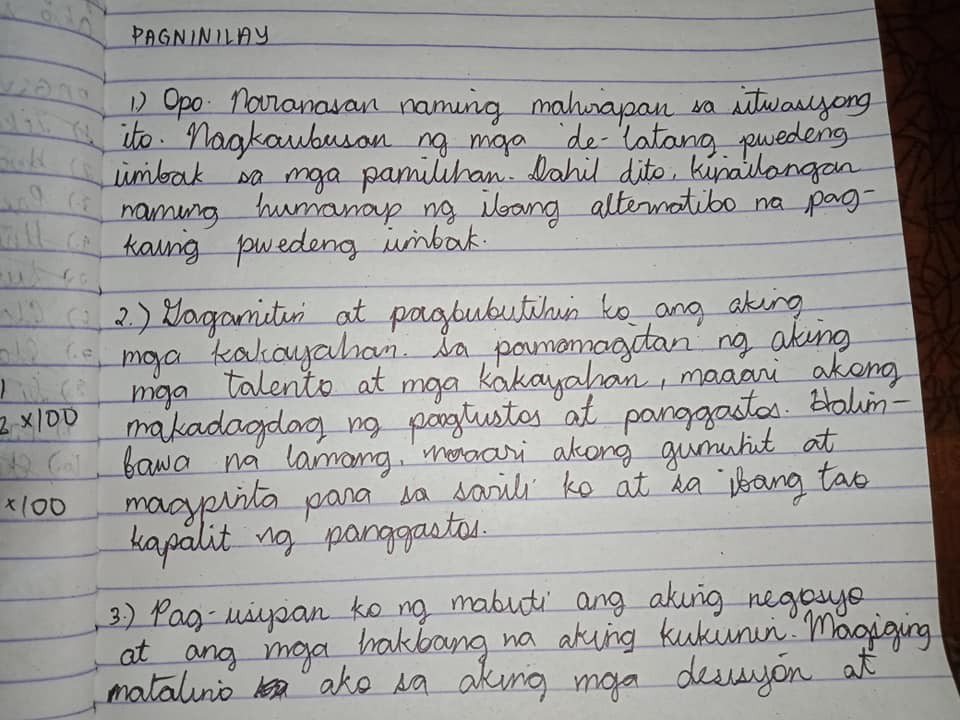 PAGNINILAY
1.) Opo. Naranasan naming mahirapan sa sitwasyong
ito. Nagkaubusan ng mga de-latang pwedeng
iimbak sa mga pamilihan. Dahil dito, kinailangan
naming humanap ng ibang alternatibo na pag-
kaing pwedeng iimbak.
2.) Gagamitin at pagbubutihin ko ang aking
mga kakayahan. Sa pamamagitan ng aking
mga talento at mga kakayahan, maaari akong
makadagdag ng pagtustos at panggastos. Halim-
bawa na lamang, maaari akong gumuhit at
magpinta para sa sarili ko at sa ibang tao
kapalit ng panggastos.
3.) Pag-iisipan ko ng mabuti ang aking negosyo
at ang mga hakbang na aking kukunin. Magiging
matalino ako sa aking mga desisyon at
1
2 x100
x100